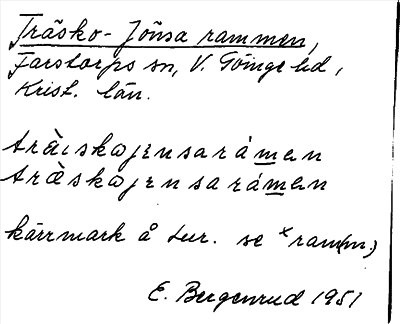 Träsko-Jönsa rammen,
Farstorps sn, V. Göinge hd,
Krist. län.
träıskojensaràmen
träskojensaràmen
kärrmark å tur. se ˣram(m.)
E. Bergenrud 1951